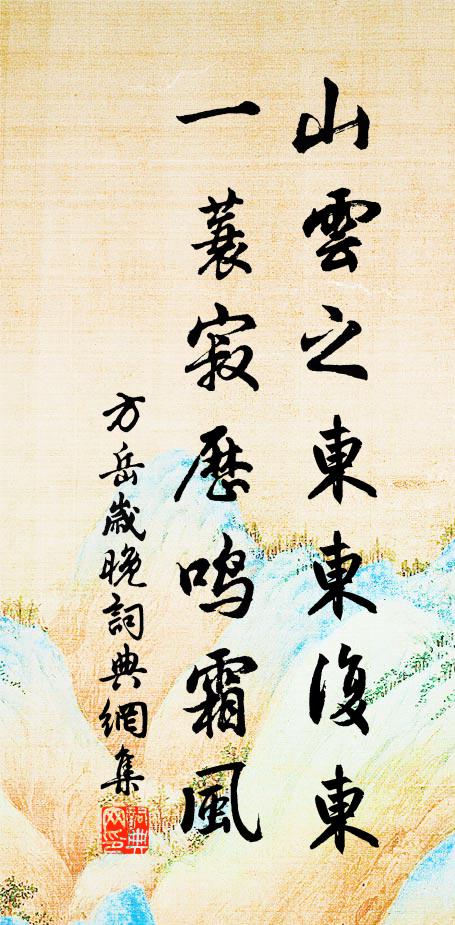 山雲之東東復東
一蓑寂歷鳴霜風
方岳歲晚詞典網集
詞典
网印